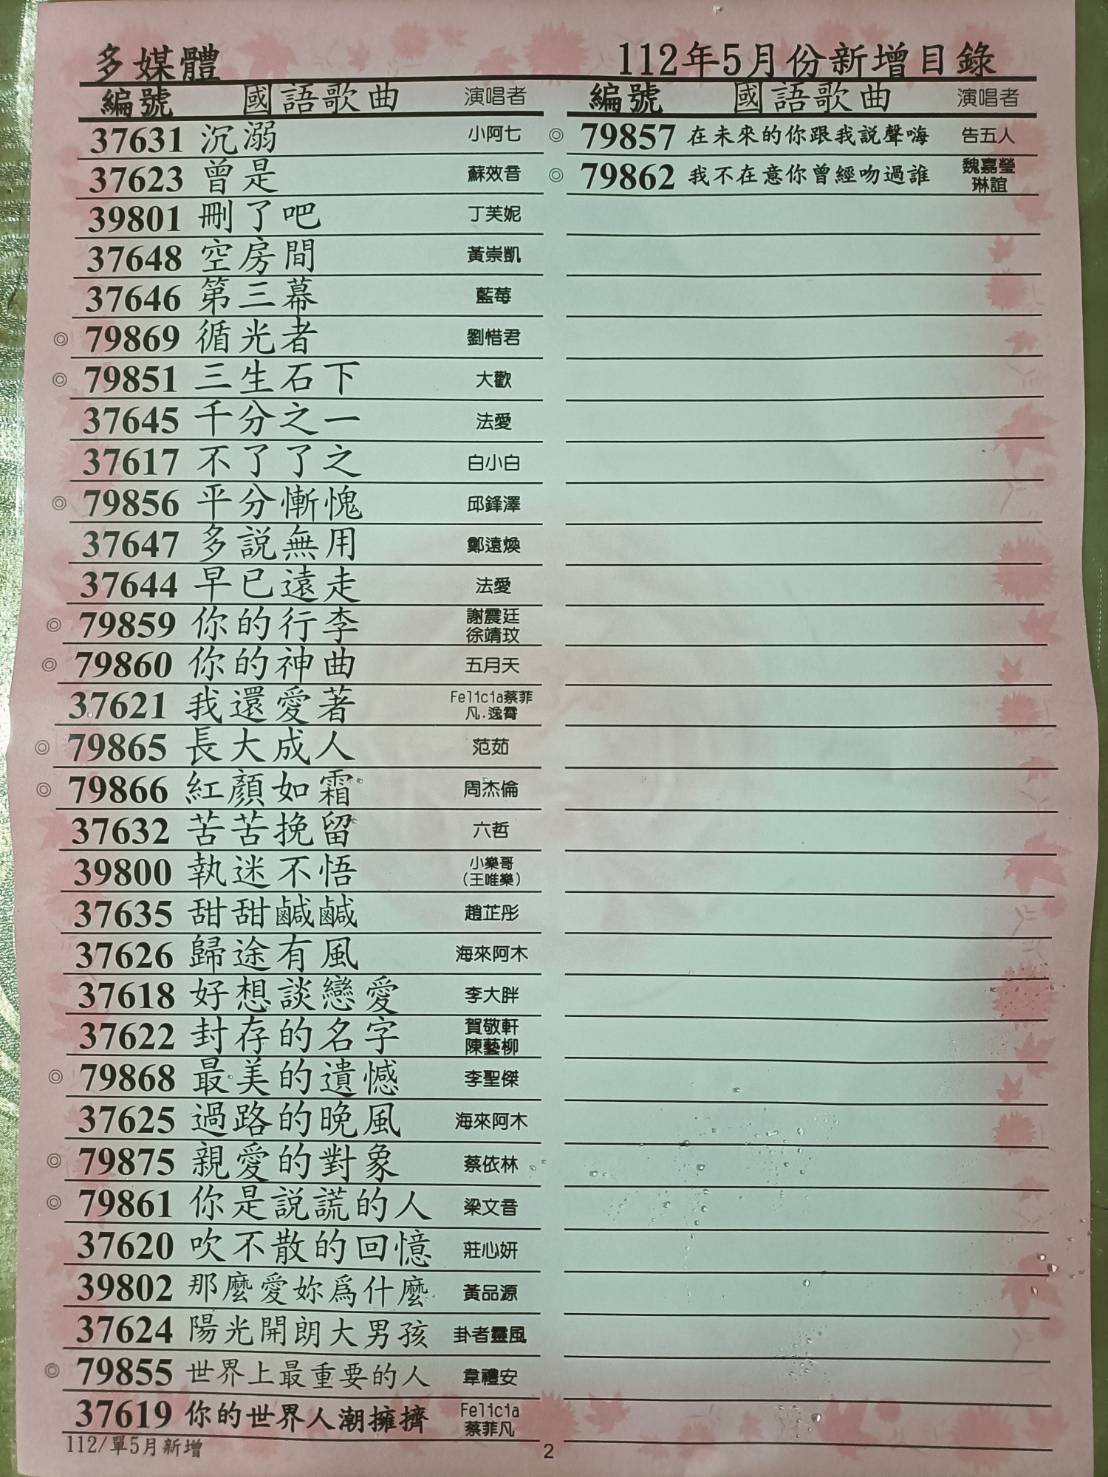 多媒體 112年5月份新增目錄
編號 國語歌曲 演唱者
37631 沉溺 小阿七
37623 曾是 蘇效音
39801 刪了吧 丁芙妮
37648 空房間 黃崇凱
37646 第三幕 藍莓
◎ 79869 循光者 劉惜君
◎ 79851 三生石下 大歡
37645 千分之一 法愛
37617 不了了之 白小白
◎ 79856 平分慚愧 邱鋒澤
37647 多說無用 鄭遠煥
37644 早已遠走 法愛
◎ 79859 你的行李 謝震廷 徐靖玟
◎ 79860 你的神曲 五月天
37621 我還愛著 Felicia蔡菲凡.逸霄
◎ 79865 長大成人 范茹
◎ 79866 紅顏如霜 周杰倫
37632 苦苦挽留 六哲
39800 執迷不悟 小樂哥(王唯樂)
37635 甜甜鹹鹹 趙芷彤
37626 歸途有風 海來阿木
37618 好想談戀愛 李大胖
37622 封存的名字 賀敬軒 陳藝柳
◎ 79868 最美的遺憾 李聖傑
37625 過路的晚風 海來阿木
◎ 79875 親愛的對象 蔡依林
◎ 79861 你是說謊的人 梁文音
37620 吹不散的回憶 莊心妍
39802 那麼愛妳為什麼 黃品源
37624 陽光開朗大男孩 卦者靈風
◎ 79855 世界上最重要的人 韋禮安
37619 你的世界人潮擁擠 Felicia蔡菲凡
編號 國語歌曲 演唱者
◎ 79857 在未來的你跟我說聲嗨 告五人
◎ 79862 我不在意你曾經吻過誰 魏嘉瑩 琳誼
112/單5月新增
2